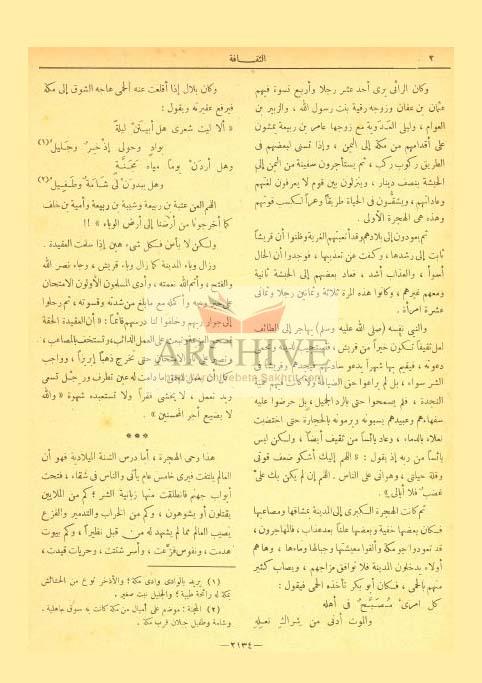 ٢
الثقافة
وكان الرائى يرى أحد عشر رجلا وأربع نسوة فيهم
عثمان بن عفان وزوجه رقية بنت رسول الله ، والزبير بن
العوام ، وليلى العدوية مع زوجها عامر بن ربيعة يمشون
على أقدامهم من مكة إلى اليمن ، وإذا تسنى لبعضهم فى
الطريق ركوب ركب ، ثم يستأجرون سفينة من اليمن إلى
الحبشة بنصف دينار ، وينزلون بين قوم لا يعرفون لغتهم
وعاداتهم ، ويشقون فى الحياة طريقاً وعراً لكسب قوتهم
وهذه هى الهجرة الأولى .
ثم يعودون إلى بلادهم وقد أتعبتهم الغربة وظنوا أن قريشاً
ثابت إلى رشدها ، وكفت عن تعذيبها ، فوجدوا أن الحال
أسوأ ، والعذاب أشد ، فعاد بعضهم إلى الحبشة ثانية
ومعهم غيرهم ، وكانوا هذه المرة ثلاثة وثمانين رجلا وثمانى
عشرة امرأة .
والنبى نفسه (صلى الله عليه وسلم) يهاجر إلى الطائف
لعل ثقيفاً تكون خيراً من قريش ،
دعوته ، فيقيم بها شهراً يدعو
الشر سواء ، بل لم يراعوا حق
النجدة ، فلم يسمحوا حتى بالرد الجميل ، بل حرضوا عليه
سفهاءهم وعبيدهم يسبونه ويرمونه بالحجارة حتى اختضبت
نعلاه بالدماء ، وعاد يائساً من ثقيف أيضاً ، ولكن ليس
يائساً من ربه إذ يقول : « اللهم إليك أشكو ضعف قوتى
وقلة حيلتى ، وهوانى على الناس . اللهم إن لم يكن بك علىّ
غضب فلا أبالى » .
ثم كانت الهجرة الكبرى إلى المدينة بمشاقها ومصاعبها
فكان بعضهم خفية وبعضها علناً بعد عذاب ، فالمهاجرون ،
قد تعودوا جو مكة وألفوا معيشتها وجبالها وماءها ، وها هم
أولاء يدخلون المدينة فلا توافق مزاجهم ، ويصاب كثير
منهم بالحمى ، فكان أبو بكر تأخذه الحمى فيقول :
كل امرئ مُصَبَّحٌ فى أهله
والموت أدنى من شراك نعله
وكان بلال إذا أقلعت عنه الحمى هاجه الشوق إلى مكة
فيرفع عقيرته ويقول :
« ألا ليت شعرى هل أبيتنّ ليلةً
بوادٍ وحولى إذخر وجليل (١)
وهل أردنْ يوماً مياه مجنّةٍ
وهل يبدونْ لى شامة وطفيل (٢)
اللهم العن عتبة بن ربيعة وشيبة بن ربيعة وأمية بن خلف
كما أخرجونا من أرضنا إلى أرض الوباء » !!
ولكن لا بأس فكل شىء هين إذا سلمت العقيدة .
وزال وباء المدينة كما زال وباء قريش ، وجاء نصر الله
والفتح ، وأتم الله نعمته ، وأدى المسلمون الأولون الامتحان
على خير وجه وأكمله مع ما بلغ من شدته وقسوته ، ثم رحلوا
إلى جوار ربهم وخلفوا لنا درسهم قائماً : « أن العقيدة الحقة
لا يضيع أجر المحسنين » .
* * *
هذا وحى الهجرة ، أما درس السنة الميلادية فهو أن
العالم يلتفت فيرى خامس عام يأتى والناس فى شقاء ، فتحت
أبواب جهنم فانطلقت منها زبانية الشر ؛ كم من الملايين
يقتلون أو يشوهون ، وكم من الخراب والتدمير والفزع
يصيب العالم مما لم يشهد له من قبل نظيراً ، وكم بيوت
هدمت ، ونفوس فزعت ، وأسر شتتت ، وحريات قيدت ،
(١) يريد بالوادى وادى مكة ؛ والأذخر نوع من الحشائش
بمكة له رائحة طيبة ؛ والجليل نبت صغير .
(٢) المجنة : موضع على أميال من مكة كانت به سوق جاهلية .
وشامة وطفيل جبلان قرب مكة .
— ٢١٣٤ —
ARCHIVE